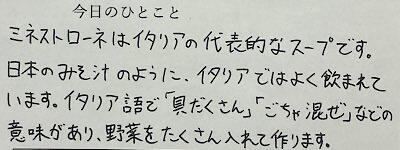 今日のひとこと
ミネストローネはイタリアの代表的なスープです。
日本のみそ汁のように、イタリアではよく飲まれて
います。イタリア語で「具だくさん」「ごちゃ混ぜ」などの
意味があり、野菜をたくさん入れて作ります。